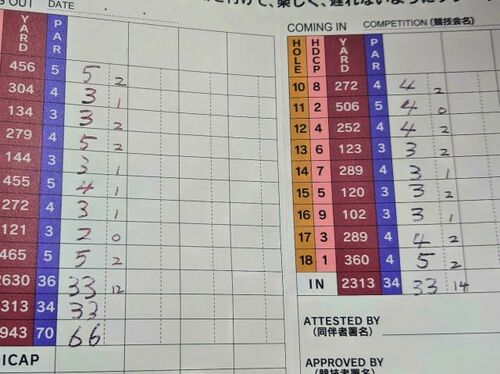 付けて、楽しく、遅れないように
OUT DATE
YARD PAR
456 5 5 2
304 4 3 1
134 3 3 2
279 4 5 2
144 3 3 1
455 5 4 1
272 4 3 1
121 3 2 0
465 5 5 2
2630 36 33 12
313 34 33
943 70 66
DICAP
COMING IN COMPETITION (競技会名)
HOLE HDCP YARD PAR
10 8 272 4 4 2
11 2 506 5 4 0
12 4 252 4 4 2
13 6 123 3 3 2
14 7 289 4 3 1
15 5 120 3 3 2
16 9 102 3 3 1
17 3 289 4 4 2
18 1 360 4 5 2
IN 2313 34 33 14
ATTESTED BY
(同伴者署名)
APPROVED BY
(競技者署名)